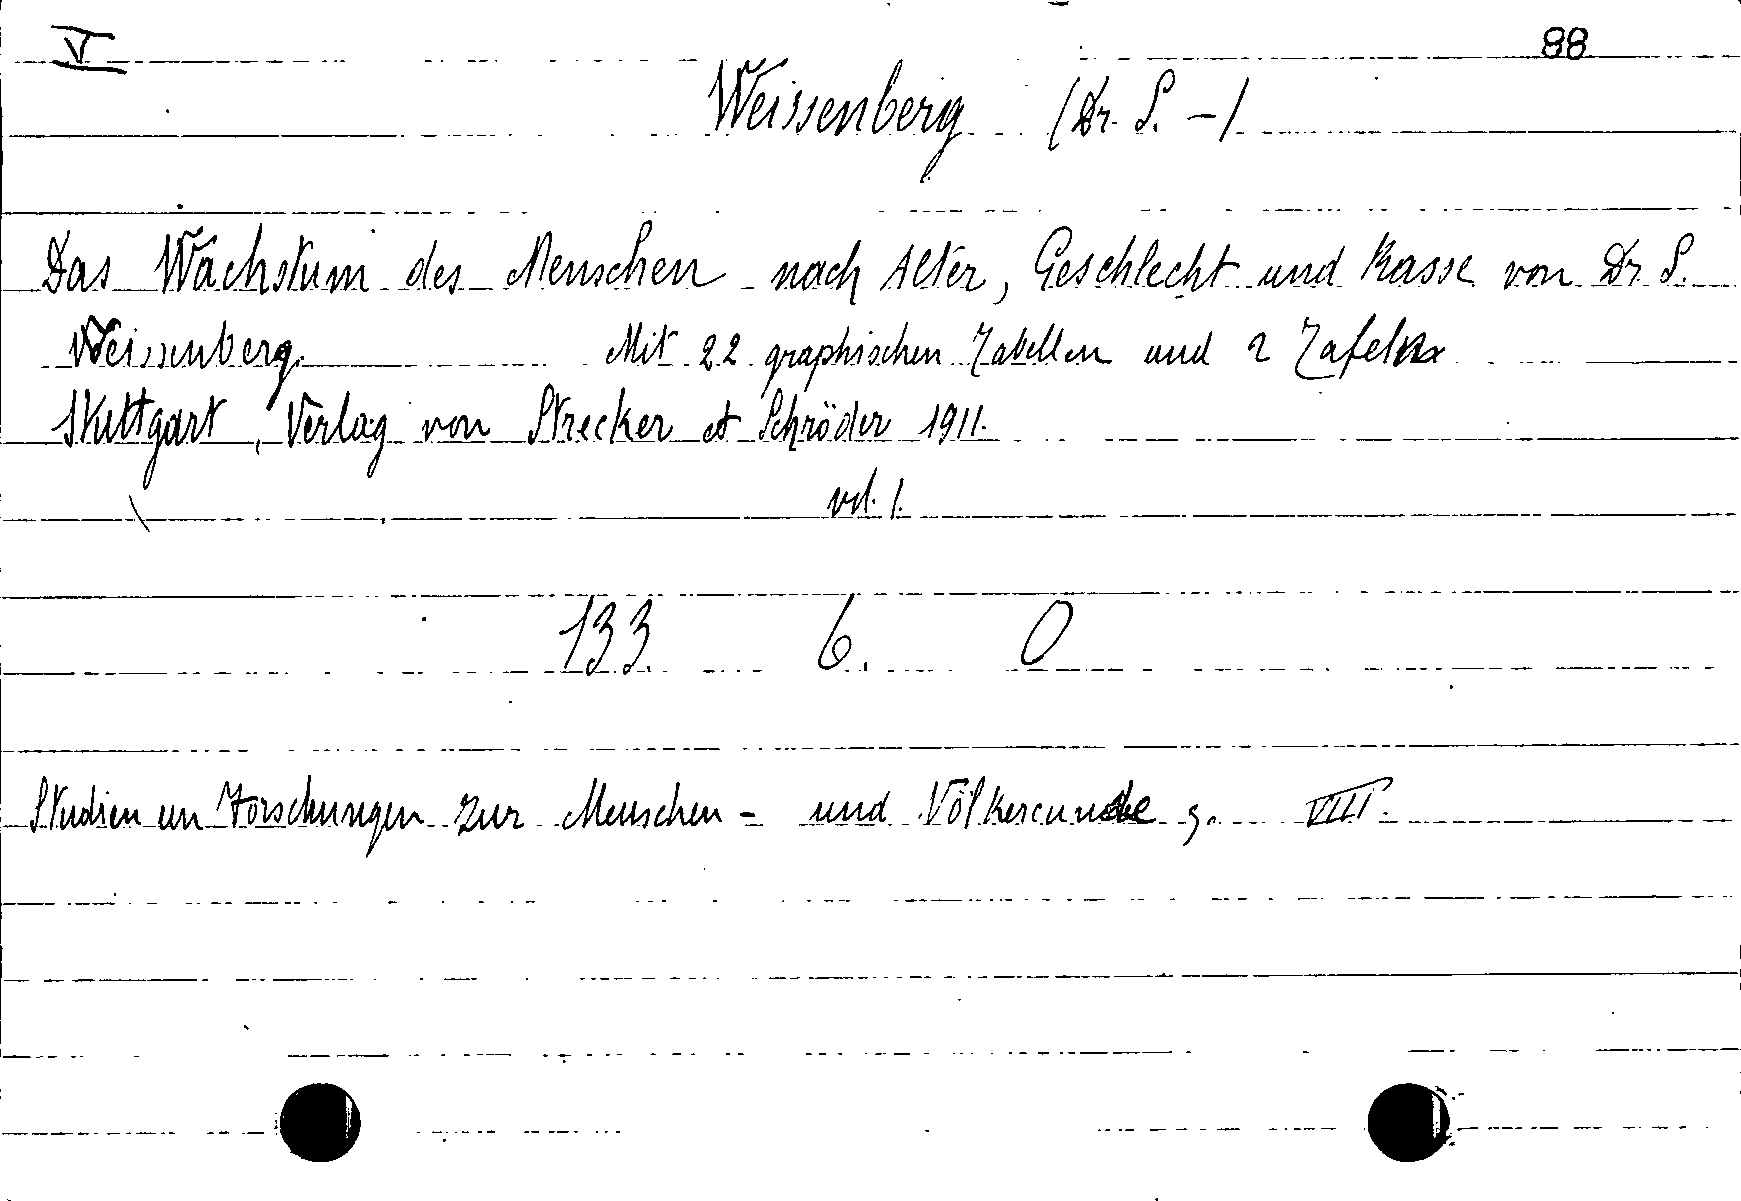 V 88
Weissenberg (Dr. S. -)
Das Wachstum des Menschen nach Alter, Geschlecht und Rasse von Dr S.
Weissenberg. Mit 22 graphischen Tabellen und 2 Tafeln
Stuttgart, Verlag von Strecker et Schröder 1911.
vol. 1.
133. 6. 0
Studien un Forschungen zur Menschen- und Völkercunde VIII.